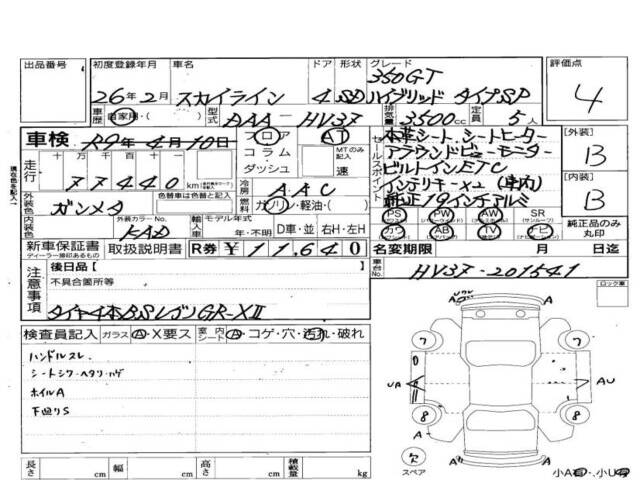 出品番号 初度登録年月 車名 ドア 形状 グレード 評価点
26年2月 スカイライン 4 SD 350GT ハイブリッド タイプSP 4
車歴 自家用・( ) 型式 DAA-HV37 排気量 3500cc 定員 5人
車検 R9年4月10日 フロア AT セールスポイント 本革シート、シートヒーター [外装] B
走行 十万 万 千 百 十 一 コラム MTのみ記入 アラウンドビューモニター
77440km ダッシュ 速 ビルトインETC [内装] B
外装色 色替車は色替と記入 冷房 AAC インテリキー×2 (車内)
ガンメタ 燃料 ガソリン・軽油・( ) 純正19インチアルミ
内装色 外装カラーNo. KAD 輸入車 モデル年式 年・不明 D車・並 右H・左H PS PW AW SR (サンルーフ) 純正品のみ丸印
カワ AB TV ナビ
新車保証書 ディーラー捺印あるもの 取扱説明書 R券 ¥11,640 名変期限 月 日迄
注意事項 後日品[ ] 車台No. HV37-201541
不具合箇所等 ロック車
タイヤ4本BSレグノGR-XⅡ
検査員記入 ガラス A・X要ス 室内シート A・コゲ・穴・汚れ・破れ
ハンドルスレ
シートシワ・ヘタリ・ハゲ
ホイルA
下廻りS
7 7
UA AU
8 8
欠 スペア A A
長さ cm 幅 cm 高さ cm 積載量 kg 小A・小U